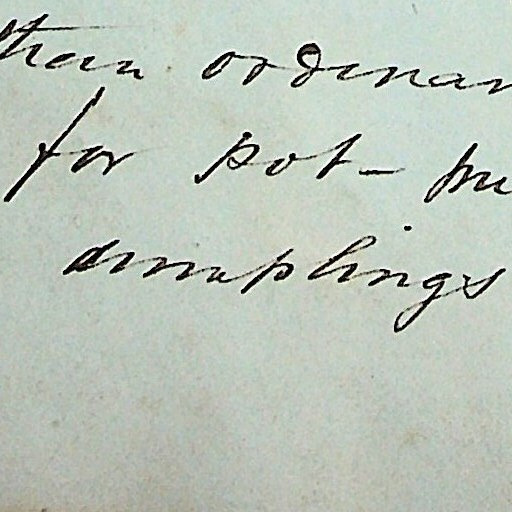 than ordinar
for pot-
dumplings